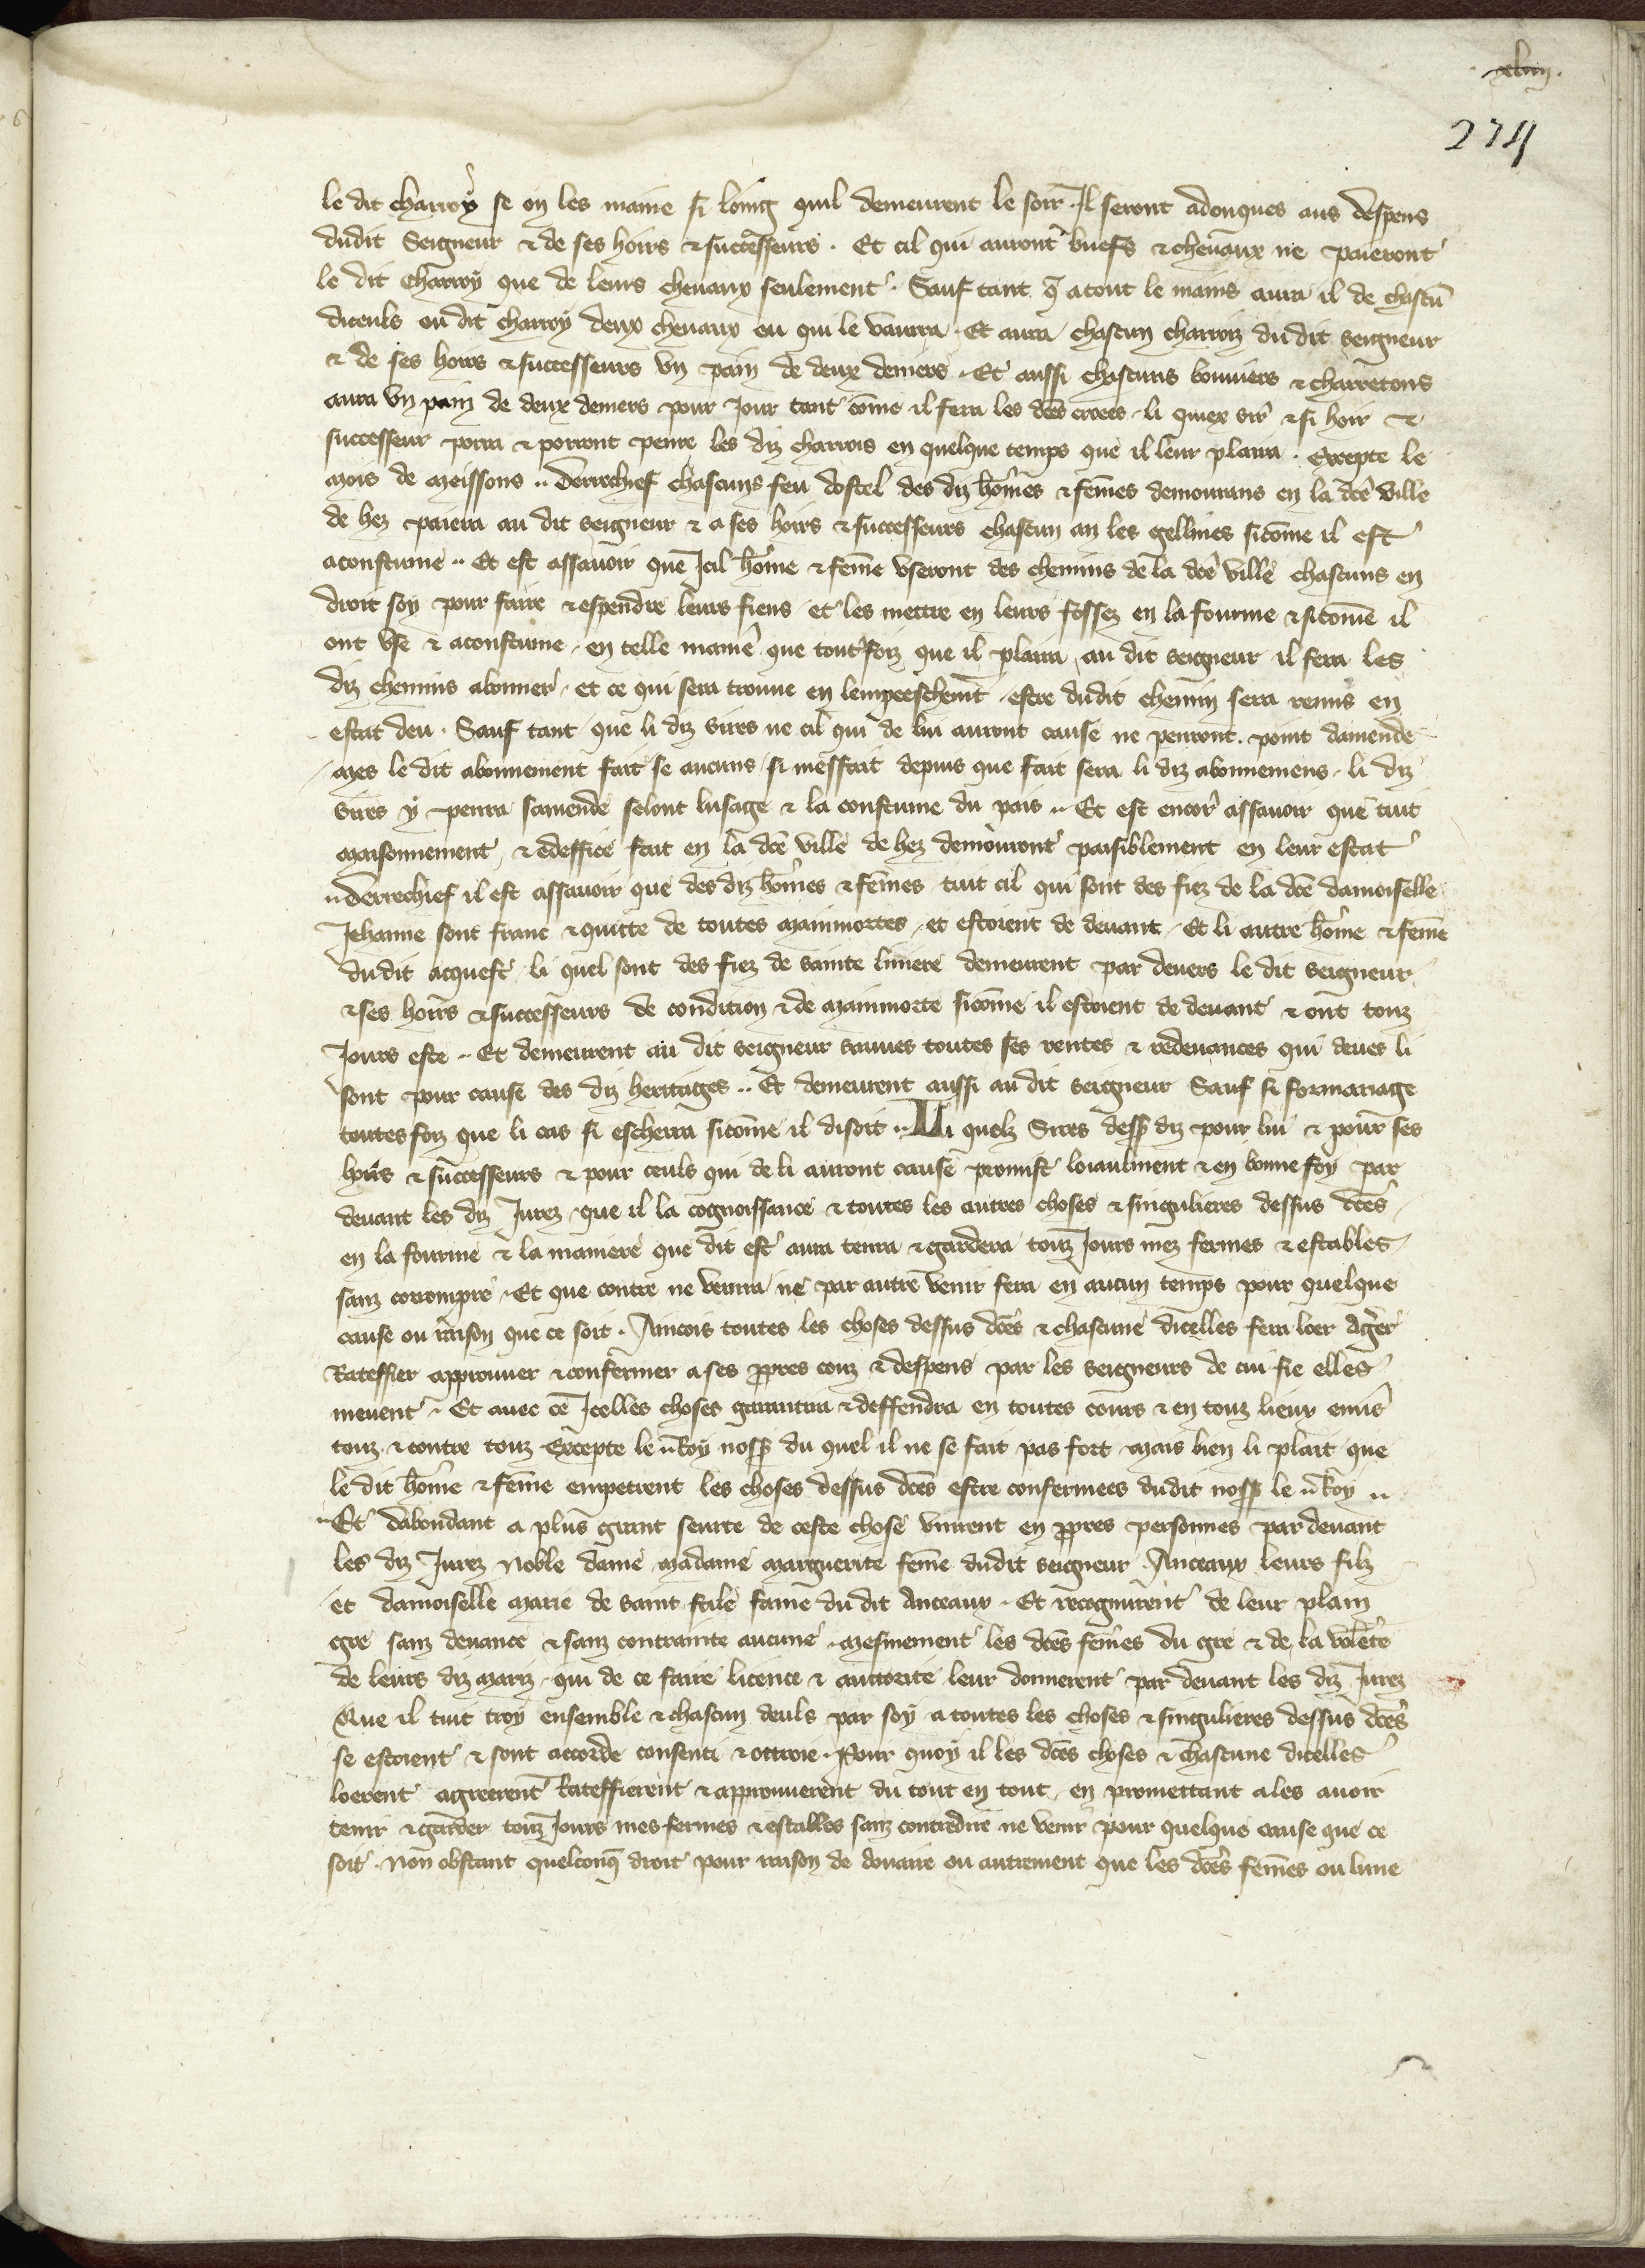 xlviij.
274
le dit charroy se on les maine si loing quil demeurent le soir. Il seront adonques aus despens
dudit Seigneur & de ses hoirs & successeurs. Et cil qui auront buefs & chevaux ne paieront
le dit Charroy que de leurs chevaux seulement. Sauf tant q̄ atout le mains aura il de chascū
diceuls ou dit charroy deux chevaux ou qui le vaura. Et aura chascun charroiz du dit seigneur
& de ses hoirs & successeurs un pain de deux deniers. Et aussi chascuns bouviers & charretons
aura un pain de deux deniers pour jour tant cōme il fera les dc̄es croees. li quiex sire & si hoir &
successeur porra & porront penre les diz charrois en quelque temps que il leur plaira. Excepte le
mois de meissons.. Derrechief chascuns feu dostel des diz hōmes & fēmes demourans en la dc̄e ville
de hez paiera au dit seigneur & a ses hoirs & successeurs chascun an les gellines sicōme il est
acoustume.. Et est assavoir que Icil hōme & fēme useront des chemins de la dc̄e ville chascuns en
droit soy pour faire & espendre leurs fiens et les mettre en leurs fossez en la fourme & sicōme il
ont use & acoustume, en telle manie' que toutesfoiz que il plaira au dit seigneur il fera les
diz chemins abonner, et ce qui sera trouve en lempeeschemēt estre dudit chemin sera remis en
estat deu. Sauf tant que li diz sires ne cil qui de lui auront cause ne penront point damende
mes le dit abonnement fait se aucuns si meffait depuis que fait sera li diz abonnemens. li diz
sires y penra samende selont lusage & la coustume du pais.. Et est encor assavoir que tuit
maisonnement & ediffice fait en la dc̄e ville de hez demouront paisiblement en leur estat
..Derrechief il est assavoir que des diz hōmes & fēmes tuit cil qui sont des fiez de la dc̄e damoiselle
Jehanne sont franc & quitte de toutes mainmortes, et estoient de devant. Et li autre hōme & fēme
dudit acquest li quel sont des fiez de sainte liviere demeurent par devers le dit seigneur
& ses hoirs & successeurs de condition & de mainmorte sicōme il estoient de devant & ont touz
Jours este.. Et demeurent au dit seigneur sauves toutes ses rentes & redevances qui deues li
sont pour cause des diz heritages.. Et demeurent aussi au dit seigneur Sauf si formariage
toutesfoiz que li cas si escherra sicōme il disoit.. Li quelz Sires dess9 diz pour lui & pour ses
hoirs & successeurs & pour ceuls qui de li auront cause promist loiaulment & en bonne foy par
devant les diz Jurez que il la cognoissance & toutes les autres choses & singulieres dessus dc̄es
en la fourme & la maniere que dit est aura tenra & gardera touz Jours mez fermes & estables
sanz corrompre. Et que contre ne venra ne par autre venir fera en aucun temps pour quelque
cause ou raison que ce soit. Ancois toutes les choses dessus dc̄es & chascune dicelles fera loer Agreer
Rateffier approuver & confermer a ses p̄pres couz & despens par les seigneurs de cui fie elles
meuvent. Et avec ce Icelles choses garantira & deffendra en toutes cours & en touz lieux envers
touz & contre touz Excepte le Roy noss9 du quel il ne se fait pas fort mais bien li plait que
le dit hōme & fēme empetrent les choses dessus dc̄es estre confermees dudit noss9 le Roy ..
..Et dabondant a plus grant seurte de ceste chose vinrent en p̄pres personnes par devant
les diz Jurez noble dame madame Marguerite fēme dudit seigneur. Anceaux leurs filz
et damoiselle marie de saint fale fame du dit Anceaux. Et recognurent de leur plain
gre sanz devance & sanz contrainte aucune. mesmement les dc̄es fēmes du gre & de la volēte
de leurs diz mariz, qui de ce faire licence & auctorite leur donnerent par devant les diz Jurez
Que il tuit troy ensemble & chascun deuls par soy a toutes les choses & singulieres dessus dc̄es
se estoient & sont accorde consenti & ottroie. Pour quoy il les dc̄es choses & chascune dicelles
loerent agreerent Rateffierent & approuverent du tout en tout, en promettant a les avoir
tenir & garder touz Jours mes fermes & estables sanz contredire ne venir pour quelque cause que ce
soit. Non obstant quelconq̄ droit pour raison de douaire ou autrement que les dc̄es fēmes ou lune